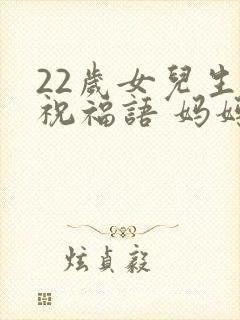 22歲女兒生
祝福語 妈妈
炫貞毅